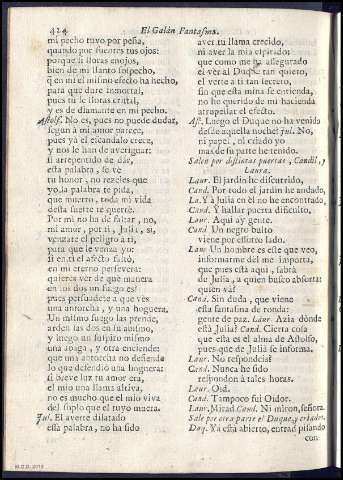 424 El Galàn Fantasma.
mi pecho tuvo por peña,
quando por fuentes tus ojos:
porque si lloras enojos,
bien de mi llanto sospecho,
q̃ en mi el mismo efecto ha hecho,
para que dure inmortal,
pues tu le lloras cristal,
y es de diamante en mi pecho.
Astolf. No es, pues no puede dudar,
segun à mi amor parece,
pues yà el escandalo crece,
y nos le han de averiguar:
si arrepentido de dar,
esta palabra, se vè
tu honor, no rezeles que
yo la palabra te pida,
que muerto, toda mi vida
desta suerte te querrè.
Por mi no ha de faltar, no,
mi amor, por ti, Julia, si,
venzate el peligro à ti,
para que le venza yo:
si en ti el afecto faltò,
en mi eterno persevera:
quieres ver de què manera
en los dos un fuego es?
pues persuadete a que ves
una antorcha, y una hoguera.
Un mismo fuego las prende,
arden las dos en su abismo,
y luego un suspiro mismo
una apaga, y otra enciende:
que una antorcha no defiende
lo que defendiò una hoguera:
si breve luz tu amor era,
el mio una llama altiva,
no es mucho que el mio viva
del soplo que el tuyo muera.
Jul. El averte dilatado
esta palabra, no ha sido
aver tu llama crecido,
ni aver la mia espirado:
que como me ha assegurado
el ver al Duque tan quieto,
el verte a ti tan secreto,
sin que esta mina se entienda,
no he querido de mi hacienda
atropellar el efecto.
Ast. Luego el Duque no ha venido
desde aquella noche? Jul. No,
ni papel, ni criado yo
mas de su parte he tenido.
Salen por distintas puertas, Candil, y
Laura.
Laur. El jardin he discurrido,
Cand. Por todo el jardin he andado,
La. Y à Julia en èl no he encontrado.
Cand. Y hallar puerta dificulto,
Laur. Aqui ay gente.
Cand. Un negro bulto
viene por essotro lado.
Lau. Un hombre es este que veo,
informarme dèl me importa,
que pues està aqui, sabrà
de Julia, a quien busco absorta:
quien và?
Cand. Sin duda, que viene
esta fantasma de ronda:
gente de paz. Laur. Azia dònde
està Julia? Cand. Cierta cosa
que esta es el alma de Astolfo,
pues que de Julia se informa.
Laur. No respondeis?
Cand. Nunca he sido
respondon à tales horas.
Laur. Oìd.
Cand. Tampoco fui Oidor.
Laur. Mirad. Cand. Ni miron, señora.
Sale por otra parte el Duque, y criados.
Duq. Yà està abierto, entrad pisando
con